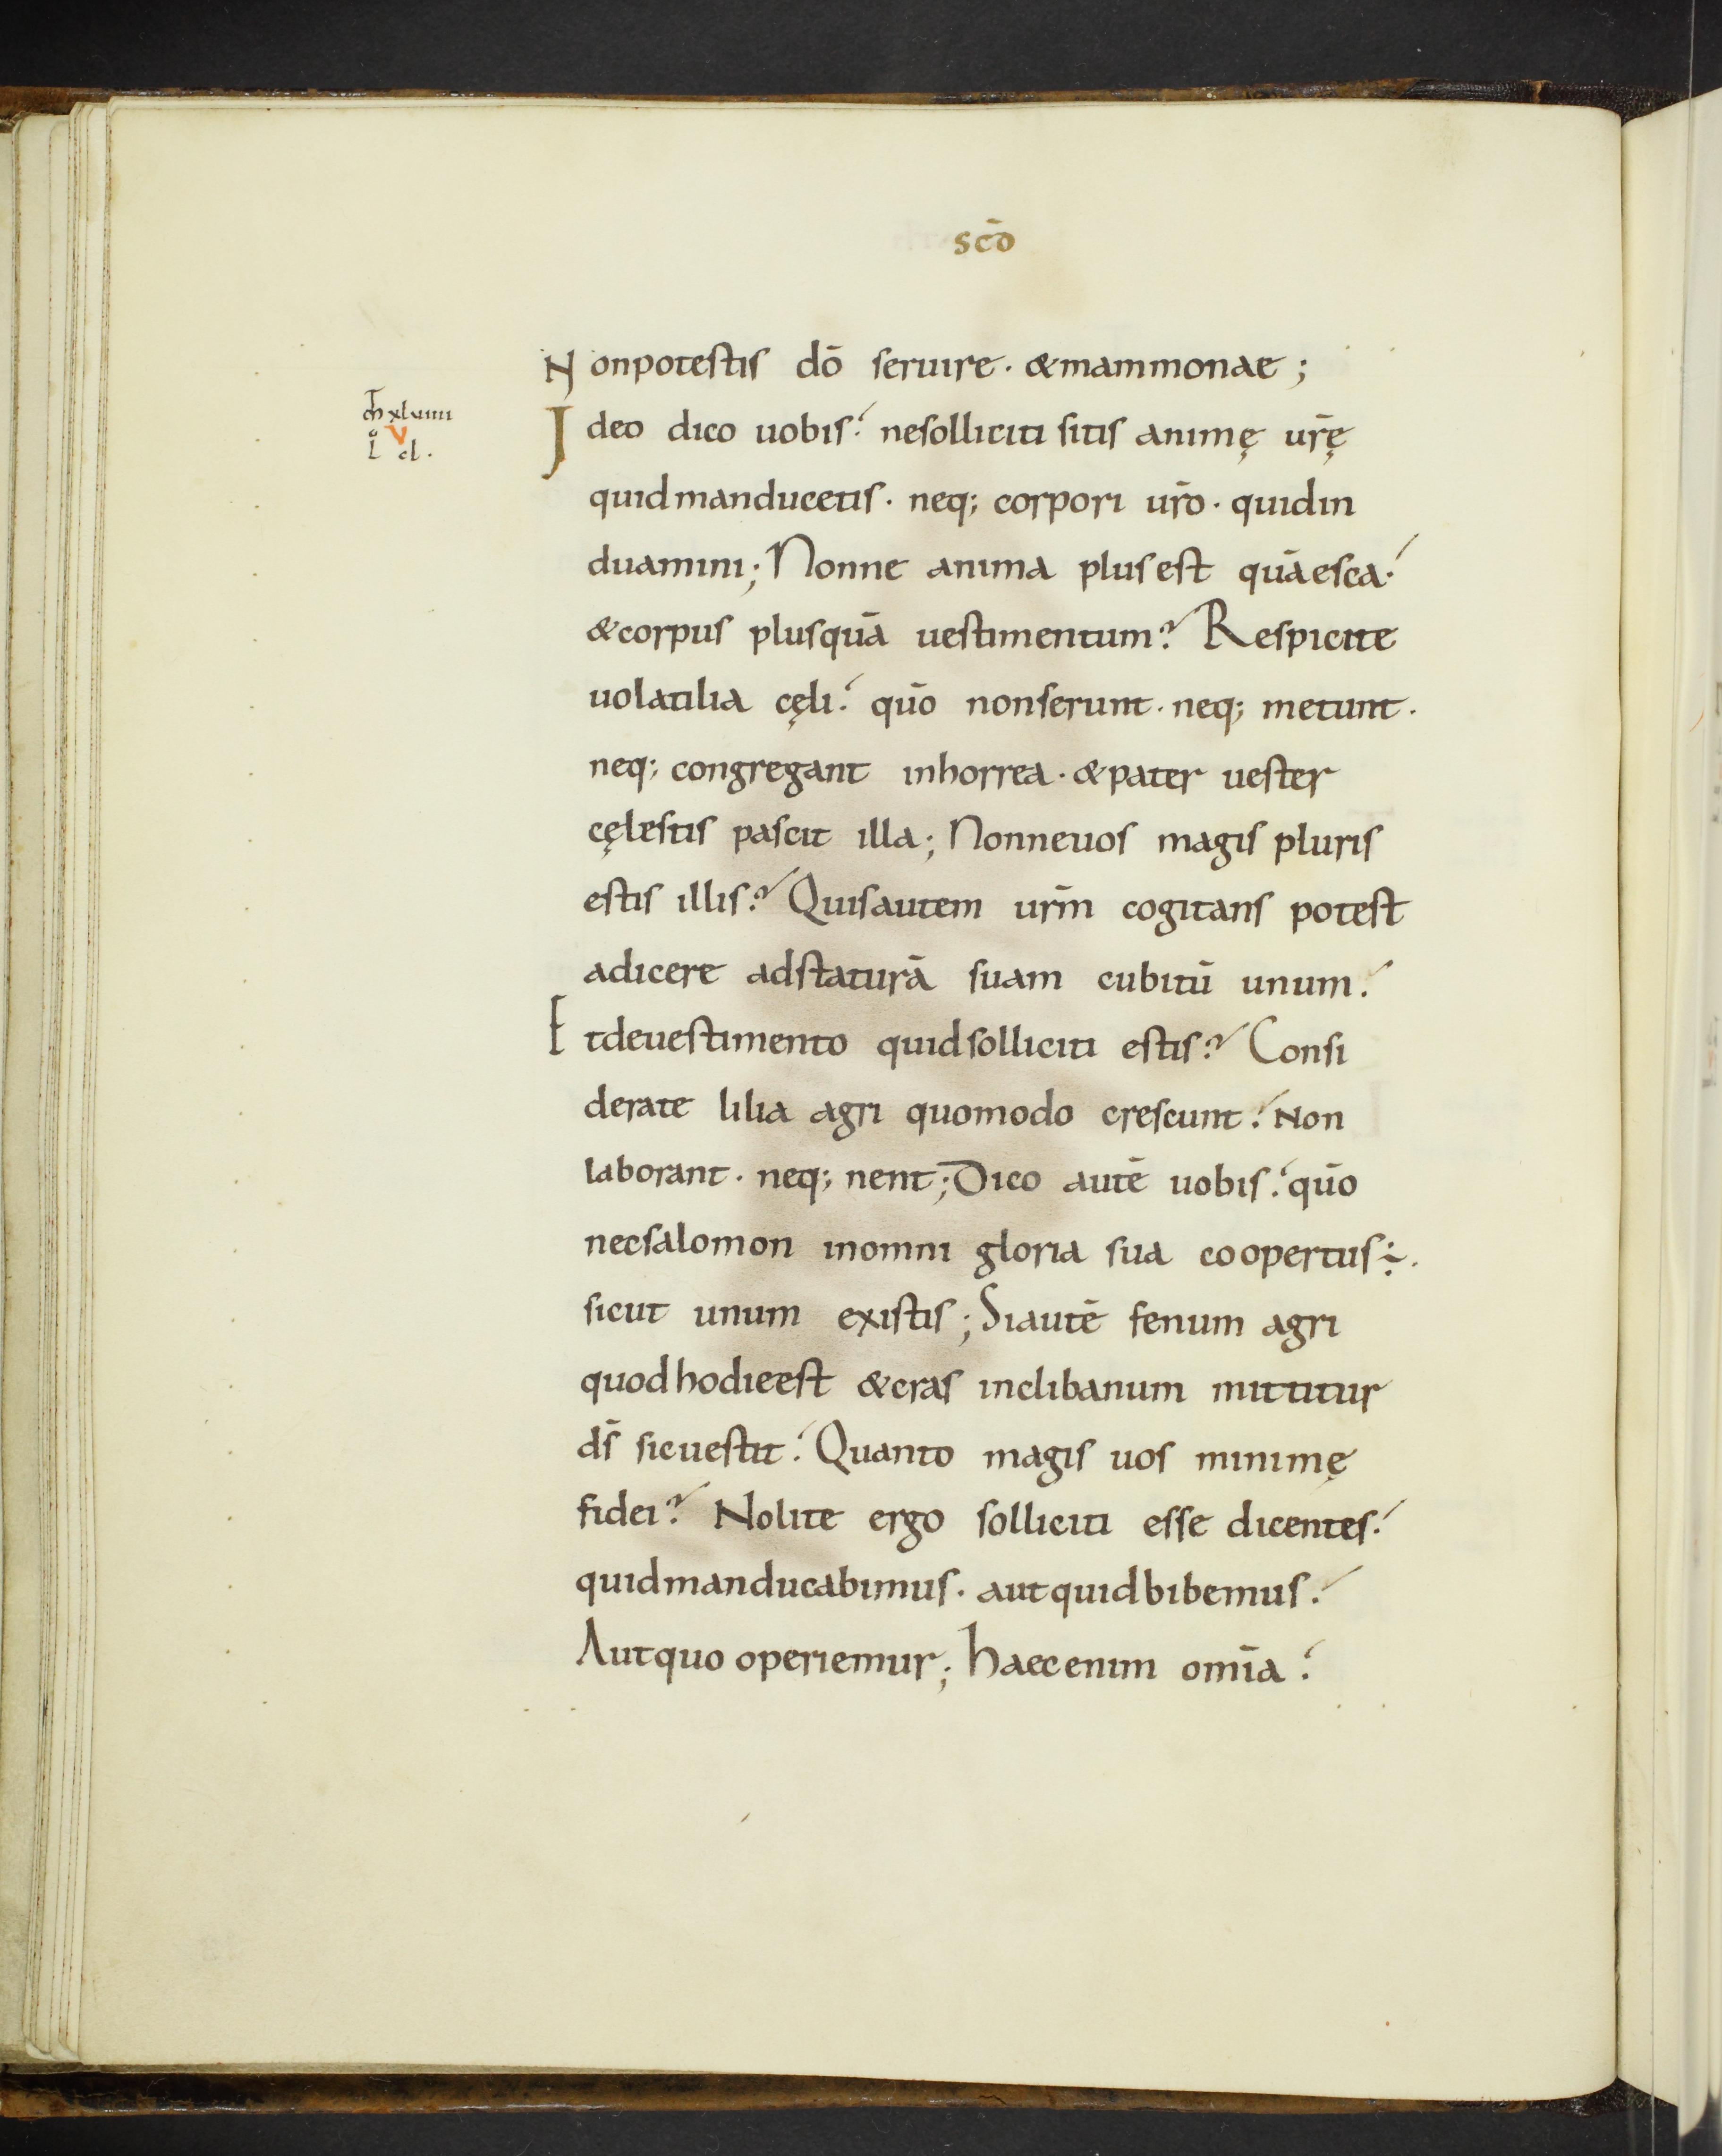 scō
Nonpotestis dō seruire · &mammonae ;
ꝳ xluiiii
Ideo dico uobis. nesolliciti sitis animę ur̄ę
V
l̊ cl ·
quidmanducetis · neq; corpori ur̄o · quidin
duamini; Nonne anima plusest quāesca.
&corpus plusquā uestimentum? Respicite
uolatilia cęli. qūo nonserunt · neq; metunt ·
neq; congregant inhorrea · &pater uester
cęlestis pascit illa; Nonneuos magis pluris
estis illis? Quisautem ur̄m cogitans potest
adicere adstaturā suam cubitū unum.
Etdeuestimento quidsolliciti estis? Consi
derate lilia agri quomodo crescunt. Non
laborant · neq; nent; Dico autē uobis. qūo
necsalomon inomni gloria sua coopertus ÷ ·
sicut unum existis; Siautē fenum agri
quodhodieest &cras inclibanum mittitur
ds̄ sicuestit. Quanto magis uos minimę
fidei? Nolite ergo solliciti esse dicentes.
quidmanducabimus · autquidbibemus.
Autquo operiemur; haecenim omīa.